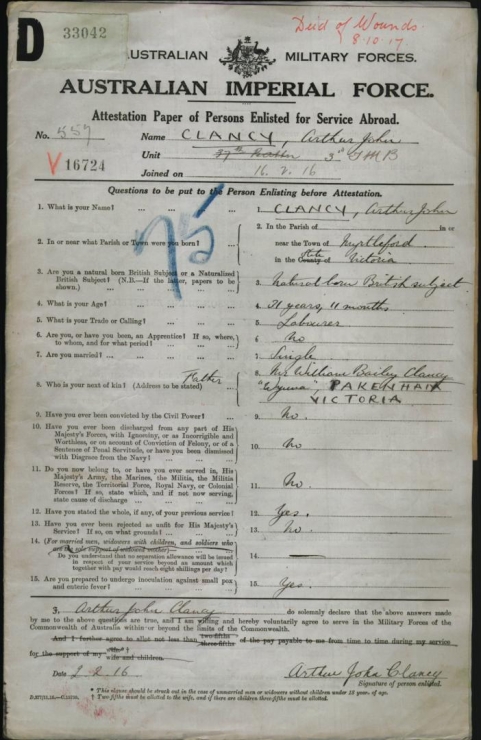 D 33042
Died of Wounds
8.10.17
AUSTRALIAN MILITARY FORCES.
AUSTRALIAN IMPERIAL FORCE.
Attestation Paper of Persons Enlisted for Service Abroad.
No. 557
Name CLANCY, Arthur John
V 16724
Unit 37th Battn 3rd TMB
Joined on 16.2.16
Questions to be put to the Person Enlisting before Attestation.
75
1. What is your Name? ... ... ... 1. CLANCY, Arthur John
2. In or near what Parish or Town were you born? ...
2. In the Parish of in or
near the Town of Myrtleford
in the County of State Victoria
3. Are you a natural born British Subject or a Naturalised
British Subject? (N.B.—If the latter, papers to be
shown.) 3. Natural born British subject
4. What is your Age? 4. 21 years, 11 months
5. What is your Trade or Calling? 5. Labourer
6. Are you, or have you been, an Apprentice? If so, where,
to whom, and for what period? 6. No
7. Are you married? ... 7. Single
8. Who is your next of kin? (Address to be stated) Father
8. Mr William Bailey Clancy
PAKENHAM
VICTORIA
9. Have you ever been convicted by the Civil Power? ... 9. No.
10. Have you ever been discharged from any part of His
Majesty's Forces, with Ignominy, or as Incorrigible and
Worthless, or on account of Conviction of Felony, or of a
Sentence of Penal Servitude, or have you been dismissed
with Disgrace from the Navy? 10. No
11. Do you now belong to, or have you ever served in, His
Majesty's Army, the Marines, the Militia, the Militia
Reserve, the Territorial Force, Royal Navy, or Colonial
Forces? If so, state which, and if not now serving,
state cause of discharge 11. No.
12. Have you stated the whole, if any, of your previous service? 12. Yes.
13. Have you ever been rejected as unfit for His Majesty's
Service? If so, on what grounds? 13. No.
14. (For married men, widowers with children, and soldiers who
are the sole support of widowed mother)—
Do you understand that no separation allowance will be issued
in respect of your service beyond an amount which
together with pay would reach eight shillings per day? 14. —
15. Are you prepared to undergo inoculation against small pox
and enteric fever? 15. Yes.
I, Arthur John Clancy do solemnly declare that the above answers made
by me to the above questions are true, and I am willing and hereby voluntarily agree to serve in the Military Forces of the
Commonwealth of Australia within or beyond the limits of the Commonwealth.
And I further agree to allot not less than two-fifths three-fifths of the pay payable to me from time to time during my service
for the support of my wife wife and children.
Date 2.2.16 Arthur John Clancy
Signature of person enlisted.
* This clause should be struck out in the case of unmarried men or widowers without children under 18 years of age.
† Two-fifths must be allotted to the wife, and if there are children three-fifths must be allotted.